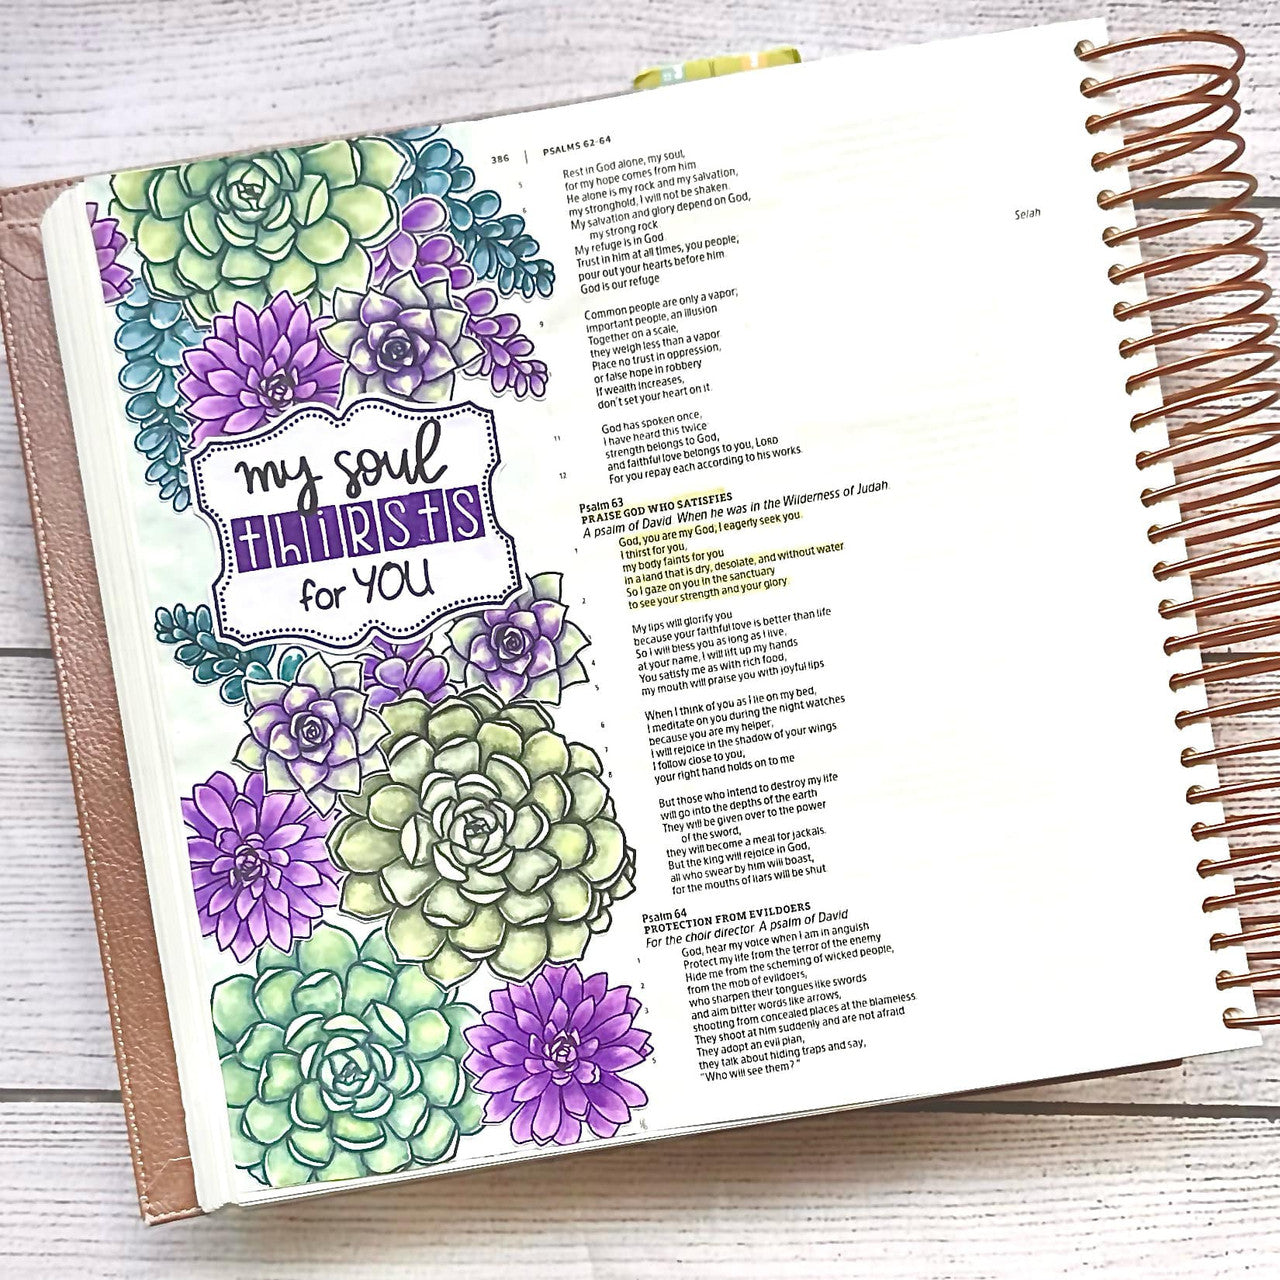 my soul
thirsts
for YOU
386 | PSALMS 62-64
Rest in God alone, my soul,
5 for my hope comes from him
He alone is my rock and my salvation,
6 my stronghold, I will not be shaken.
My salvation and glory depend on God,
my strong rock
My refuge is in God
Trust in him at all times, you people;
pour out your hearts before him
God is our refuge
Selah
Common people are only a vapor;
9 important people, an illusion
Together on a scale,
they weigh less than a vapor
Place no trust in oppression,
or false hope in robbery
If wealth increases,
don't set your heart on it.
God has spoken once,
11 I have heard this twice
strength belongs to God,
and faithful love belongs to you, LORD
12 For you repay each according to his works.
Psalm 63
PRAISE GOD WHO SATISFIES
A psalm of David When he was in the Wilderness of Judah.
1 God, you are my God; I eagerly seek you.
I thirst for you,
my body faints for you
in a land that is dry, desolate, and without water
2 So I gaze on you in the sanctuary
to see your strength and your glory
My lips will glorify you
because your faithful love is better than life
4 So I will bless you as long as I live,
at your name, I will lift up my hands
5 You satisfy me as with rich food,
my mouth will praise you with joyful lips
6 When I think of you as I lie on my bed,
I meditate on you during the night watches
7 because you are my helper,
I will rejoice in the shadow of your wings
8 I follow close to you;
your right hand holds on to me
But those who intend to destroy my life
will go into the depths of the earth
They will be given over to the power
of the sword,
they will become a meal for jackals.
But the king will rejoice in God,
all who swear by him will boast,
for the mouths of liars will be shut
Psalm 64
PROTECTION FROM EVILDOERS
For the choir director A psalm of David
1 God, hear my voice when I am in anguish
Protect my life from the terror of the enemy
2 Hide me from the scheming of wicked people,
from the mob of evildoers,
3 who sharpen their tongues like swords
and aim bitter words like arrows,
shooting from concealed places at the blameless.
They shoot at him suddenly and are not afraid
5 They adopt an evil plan,
they talk about hiding traps and say,
"Who will see them?"